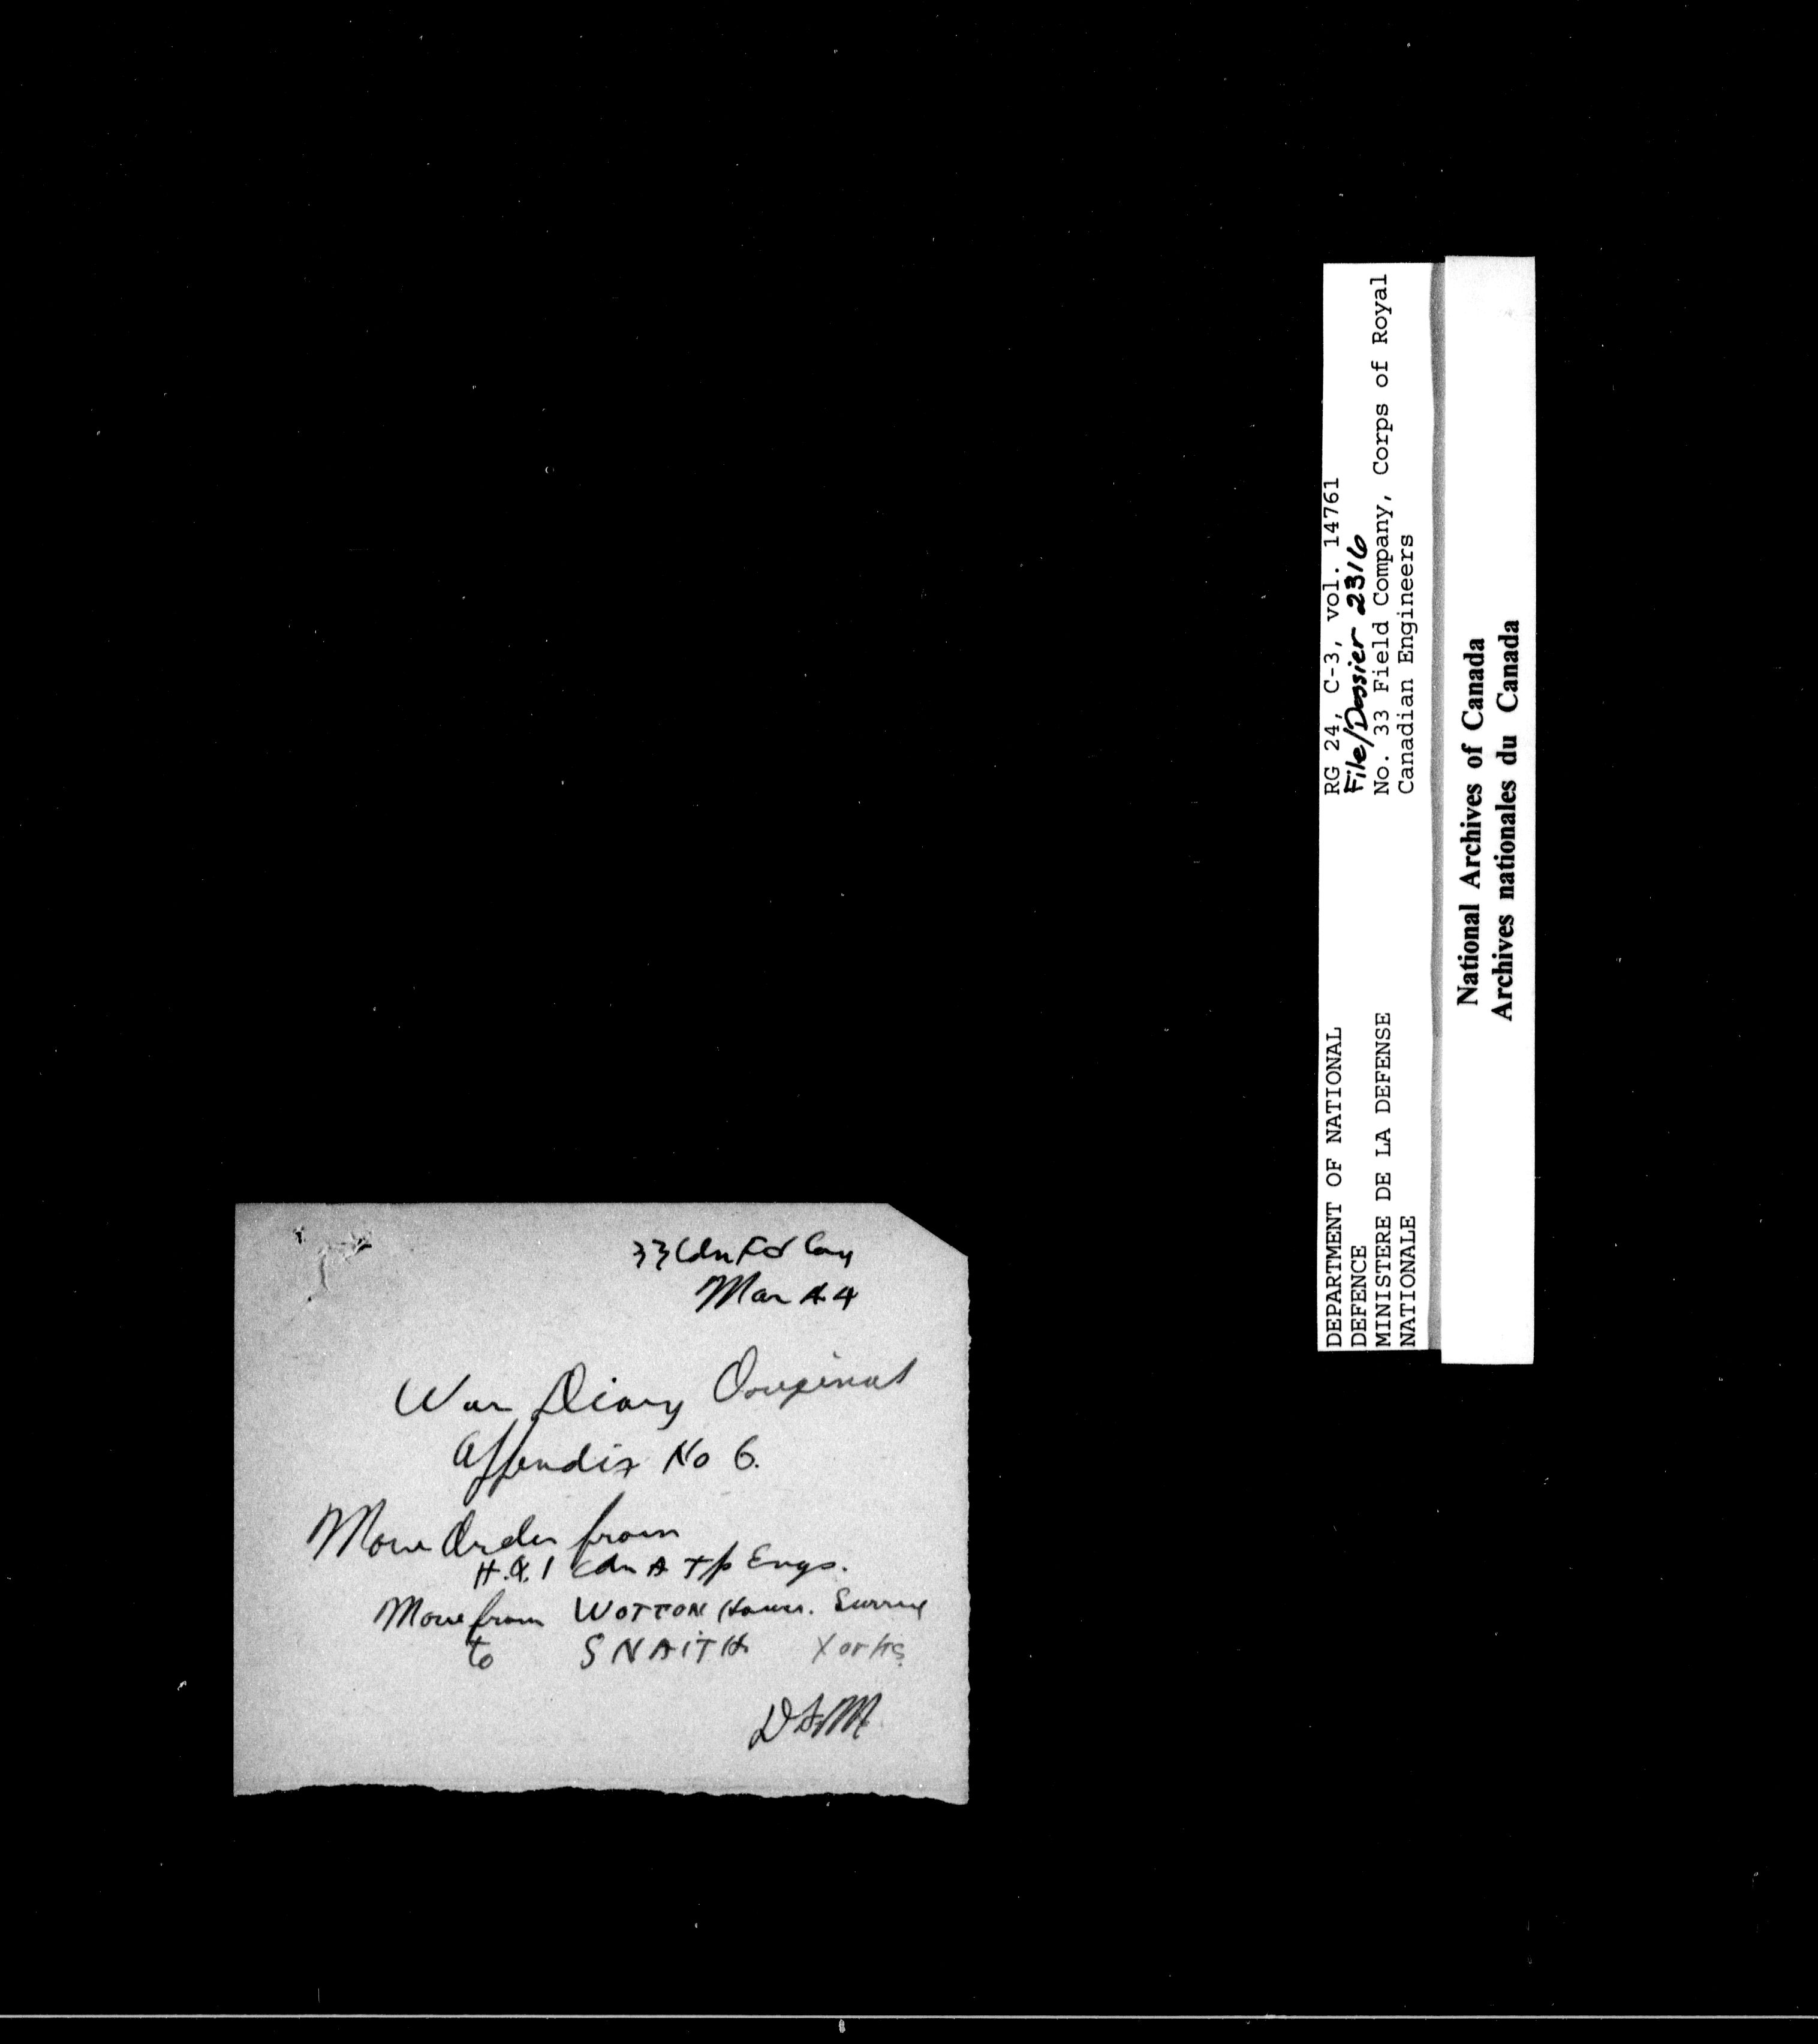 33 Cdn Fd Coy
Mar 44
War Diary Original
Appendix No 6.
Move Order from
H.Q. 1 Cdn A Tps Engs.
Move from WOTTON House. Surrey
to SNAITH Yorks
RG 24, C-3, vol. 14761
File/Dossier 2316
No. 33 Field Company, Corps of Royal
Canadian Engineers
DEPARTMENT OF NATIONAL
DEFENCE
MINISTERE DE LA DEFENSE
NATIONALE
National Archives of Canada
Archives nationales du Canada